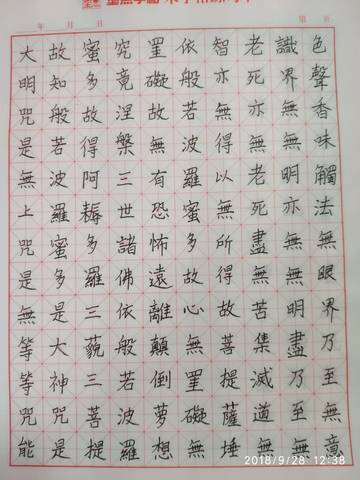 年 月 日
第 页
色聲香味觸法無眼界乃至無意
識界無無明亦無無明盡乃至無
老死亦無老死盡無苦集滅道無
智亦無得以無所得故菩提薩埵
依般若波羅蜜多故心無罣礙無
罣礙故無有恐怖遠離顛倒夢想
究竟涅槃三世諸佛依般若波羅
蜜多故得阿耨多羅三藐三菩提
故知般若波羅蜜多是大神咒是
大明咒是無上咒是無等等咒能
2018/9/28 12:38